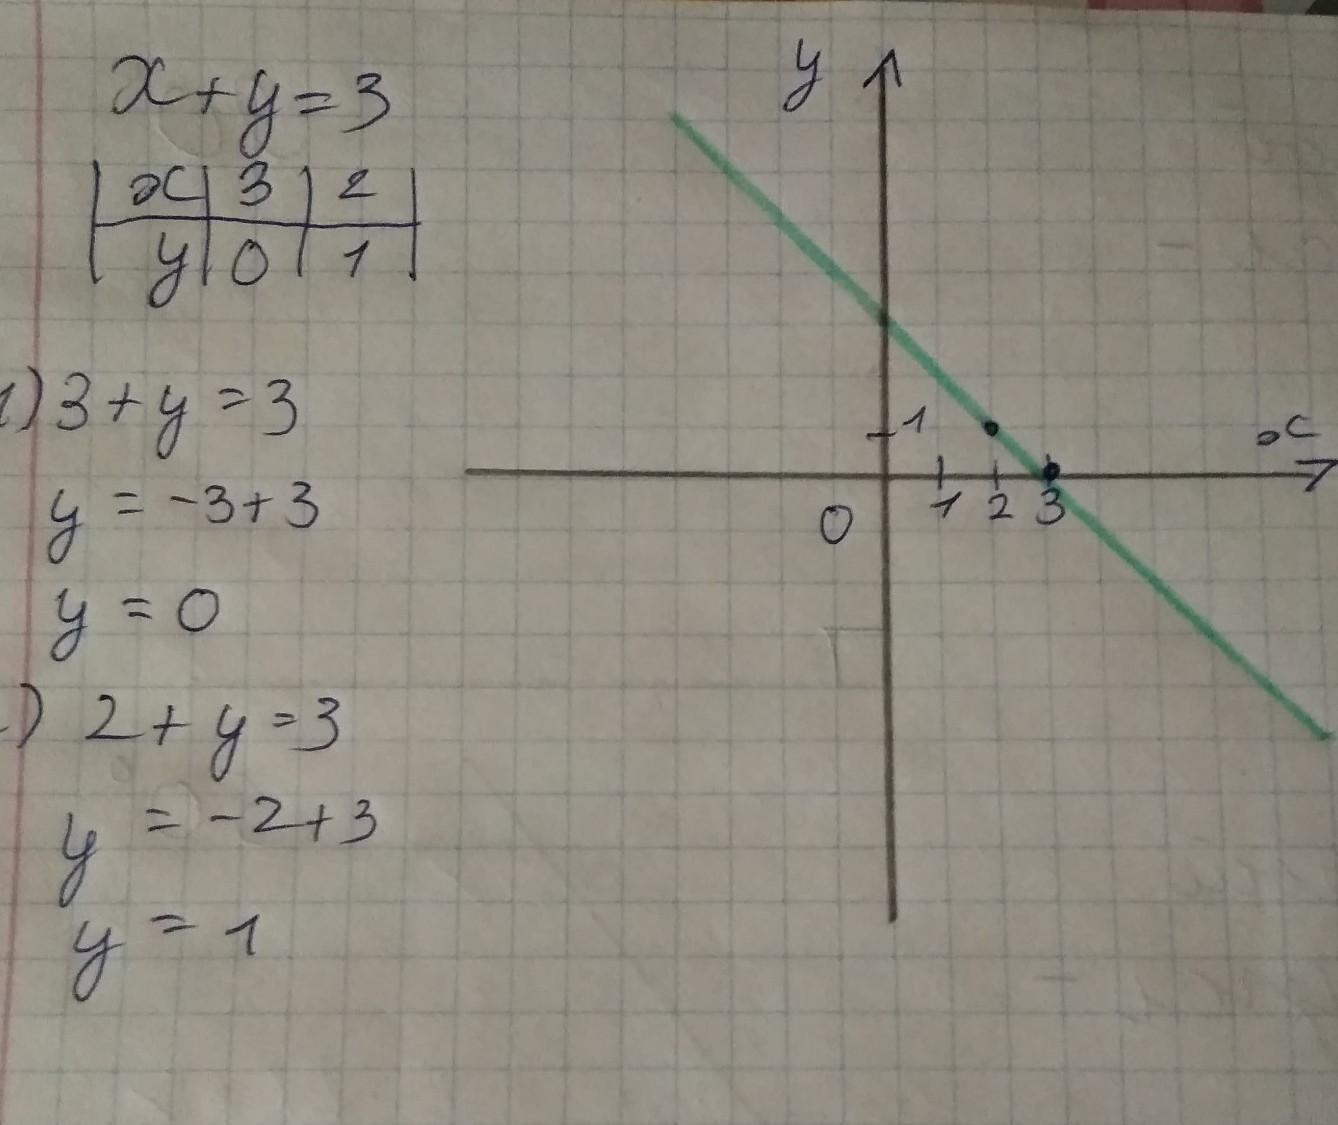 x+y=3
x 3 2
y 0 1
1) 3+y=3
y=-3+3
y=0
) 2+y=3
y=-2+3
y=1
y
1
x
0 1 2 3